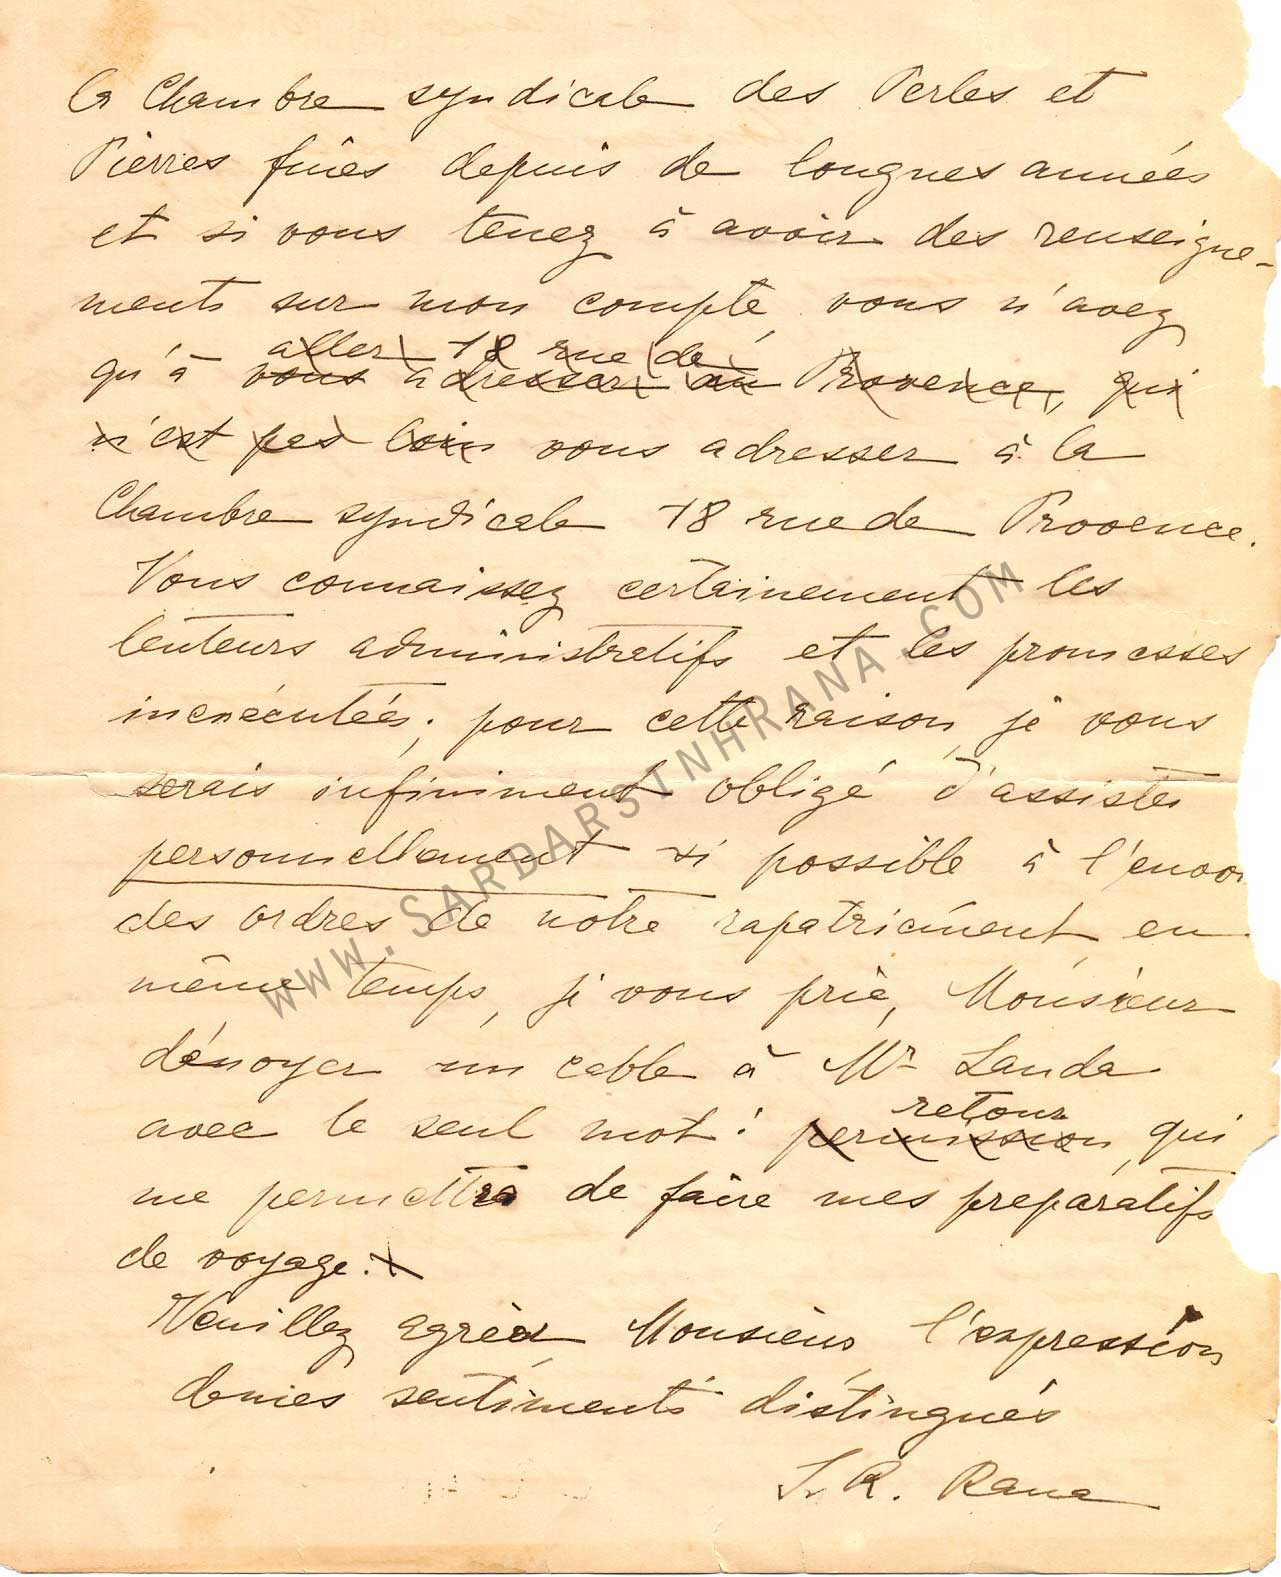 la Chambre syndicale des Perles et
Pierres fines depuis de longues années
et si vous tenez à avoir des renseigne-
ments sur mon compte vous n'avez
aller 18 rue de
qu'à vous adresser au Provence, qui
n'est pas loin vous adresser à la
Chambre syndicale 18 rue de Provence.
Vous connaissez certainement les
lenteurs administratifs et les promesses
inexécutées; pour cette raison, je vous
serais infiniment obligé d'assister
personnellement si possible à l'envoi
des ordres de notre rapatriement en
même temps, je vous prie, Monsieur
d'énoyer un cable à Mr Landa
retour
avec le seul mot: permission, qui
me permettra de faire mes préparatifs
de voyage.
Veuillez agréer Monsieur, l'expression
de mes sentiments distingués
S. R. Rana
WWW.SARDARSINHRANA.COM